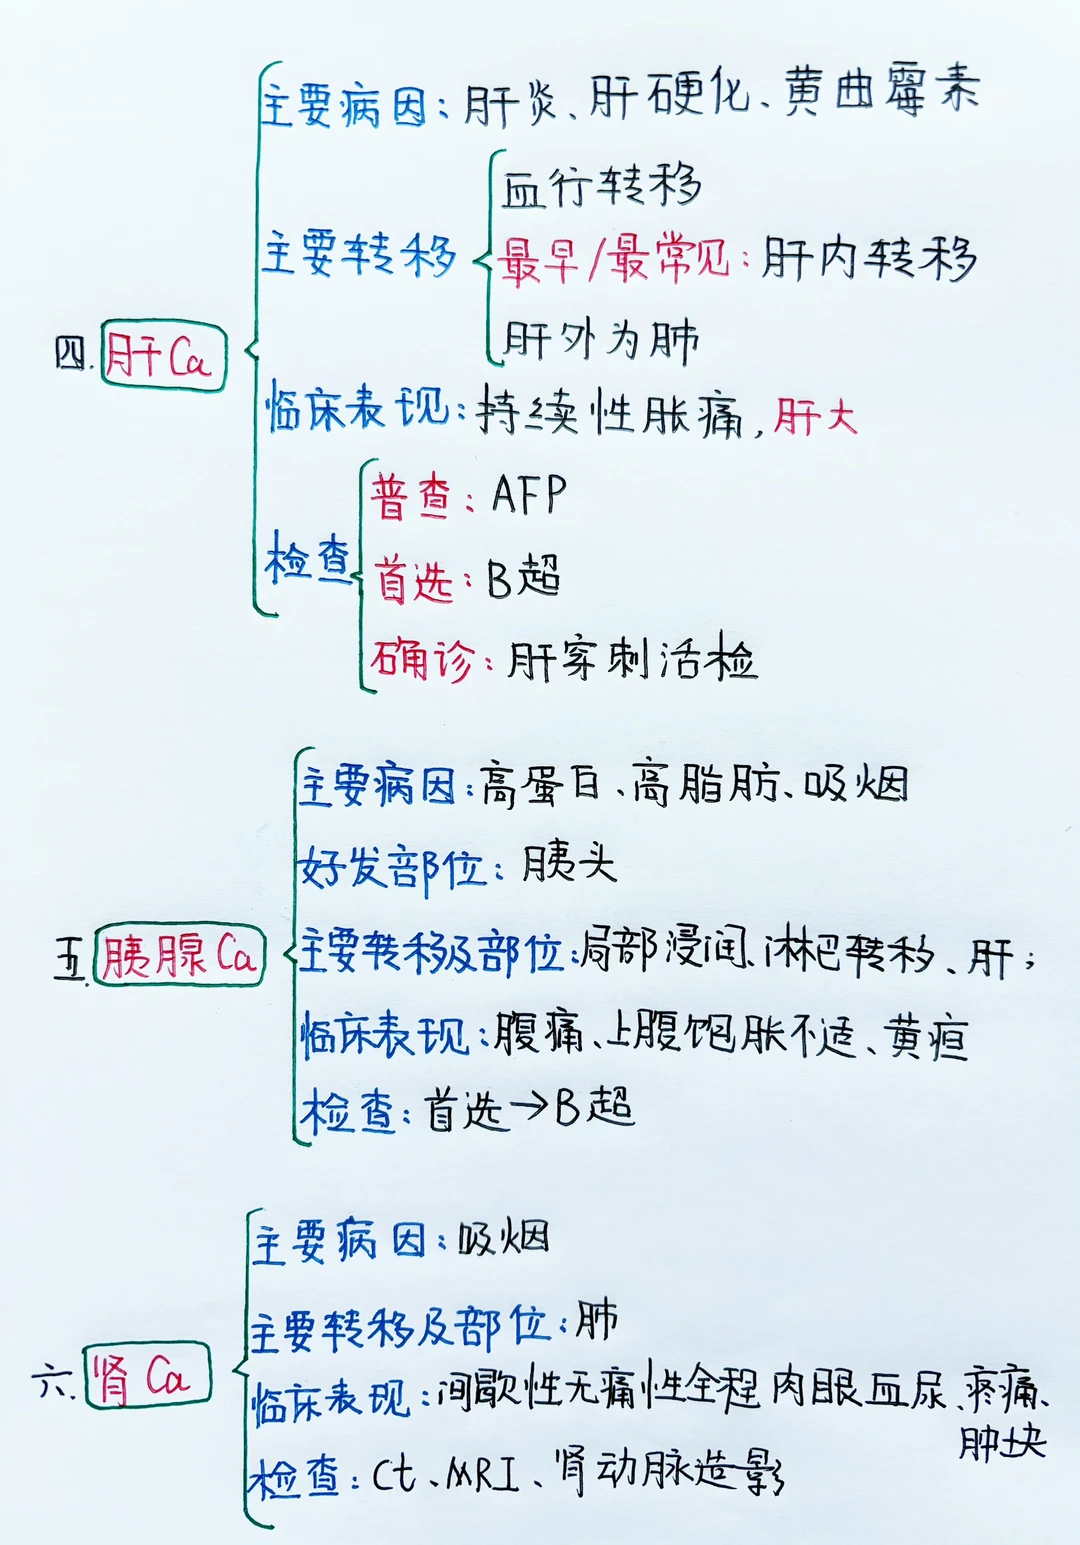 主要病因：肝炎、肝硬化、黄曲霉素
血行转移
主要转移
最早/最常见：肝内转移
肝外为肺
四.肝Ca
临床表现：持续性胀痛，肝大
普查：AFP
检查
首选：B超
确诊：肝穿刺活检
主要病因：高蛋白、高脂肪、吸烟
好发部位：胰头
五.胰腺Ca
主要转移及部位：局部浸润、淋巴转移、肝；
临床表现：腹痛、上腹饱胀不适、黄疸
检查：首选→B超
主要病因：吸烟
主要转移及部位：肺
六.肾Ca
临床表现：间歇性无痛性全程肉眼血尿、疼痛、
肿块
检查：Ct、MRI、肾动脉造影